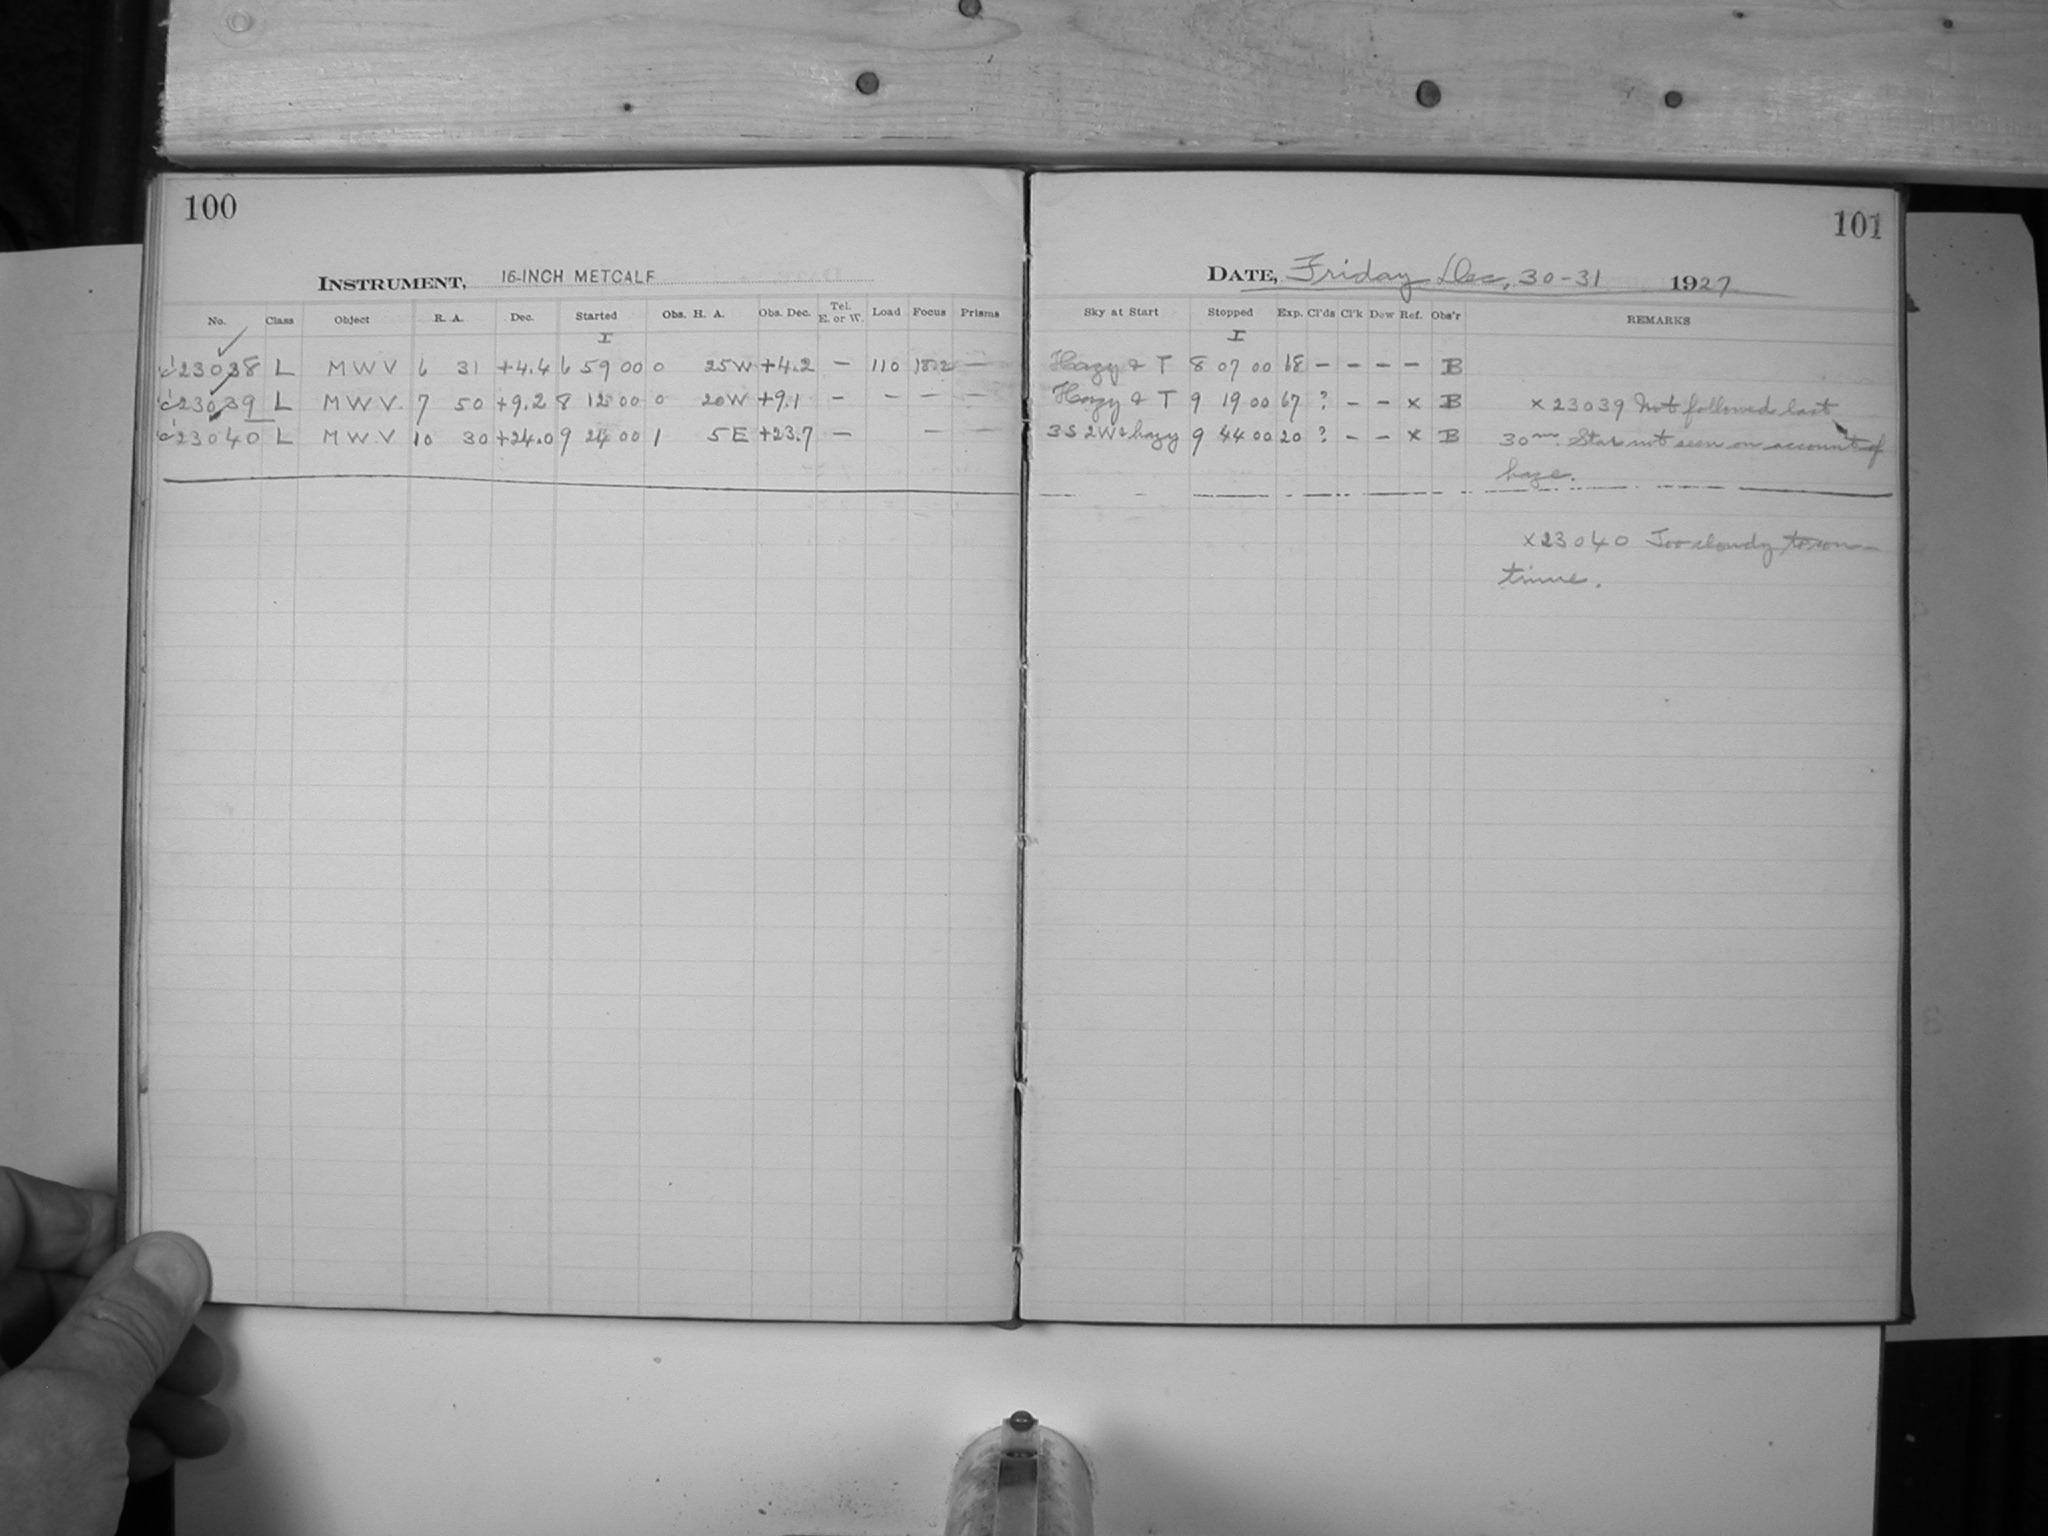 100
INSTRUMENT, 16-INCH METCALF
No. Class Object R. A. Dec. Started Obs. H. A. Obs. Dec. Tel. E. or W. Load Focus Prisms
I
23038 L M W V 6 31 +4.4 6 59 00 0 25W +4.2 — 110 18.2 —
23039 L M W V. 7 50 +9.2 8 12 00 0 20W +9.1 — — — —
23040 L M W V 10 30 +24.0 9 24 00 1 5E +23.7 — — —
101
DATE, Friday Dec, 30-31 1927
Sky at Start Stopped Exp. Cl'ds Cl'k Dew Ref. Obs'r REMARKS
I
Hazy & T 8 07 00 68 — — — — B
Hazy & T 9 19 00 67 ? — — x B x 23039 Not followed last
3S 2W & hazy 9 44 00 20 ? — — x B 30m. Star not seen on account of
haze.
x 23040 Too cloudy to con-
tinue.